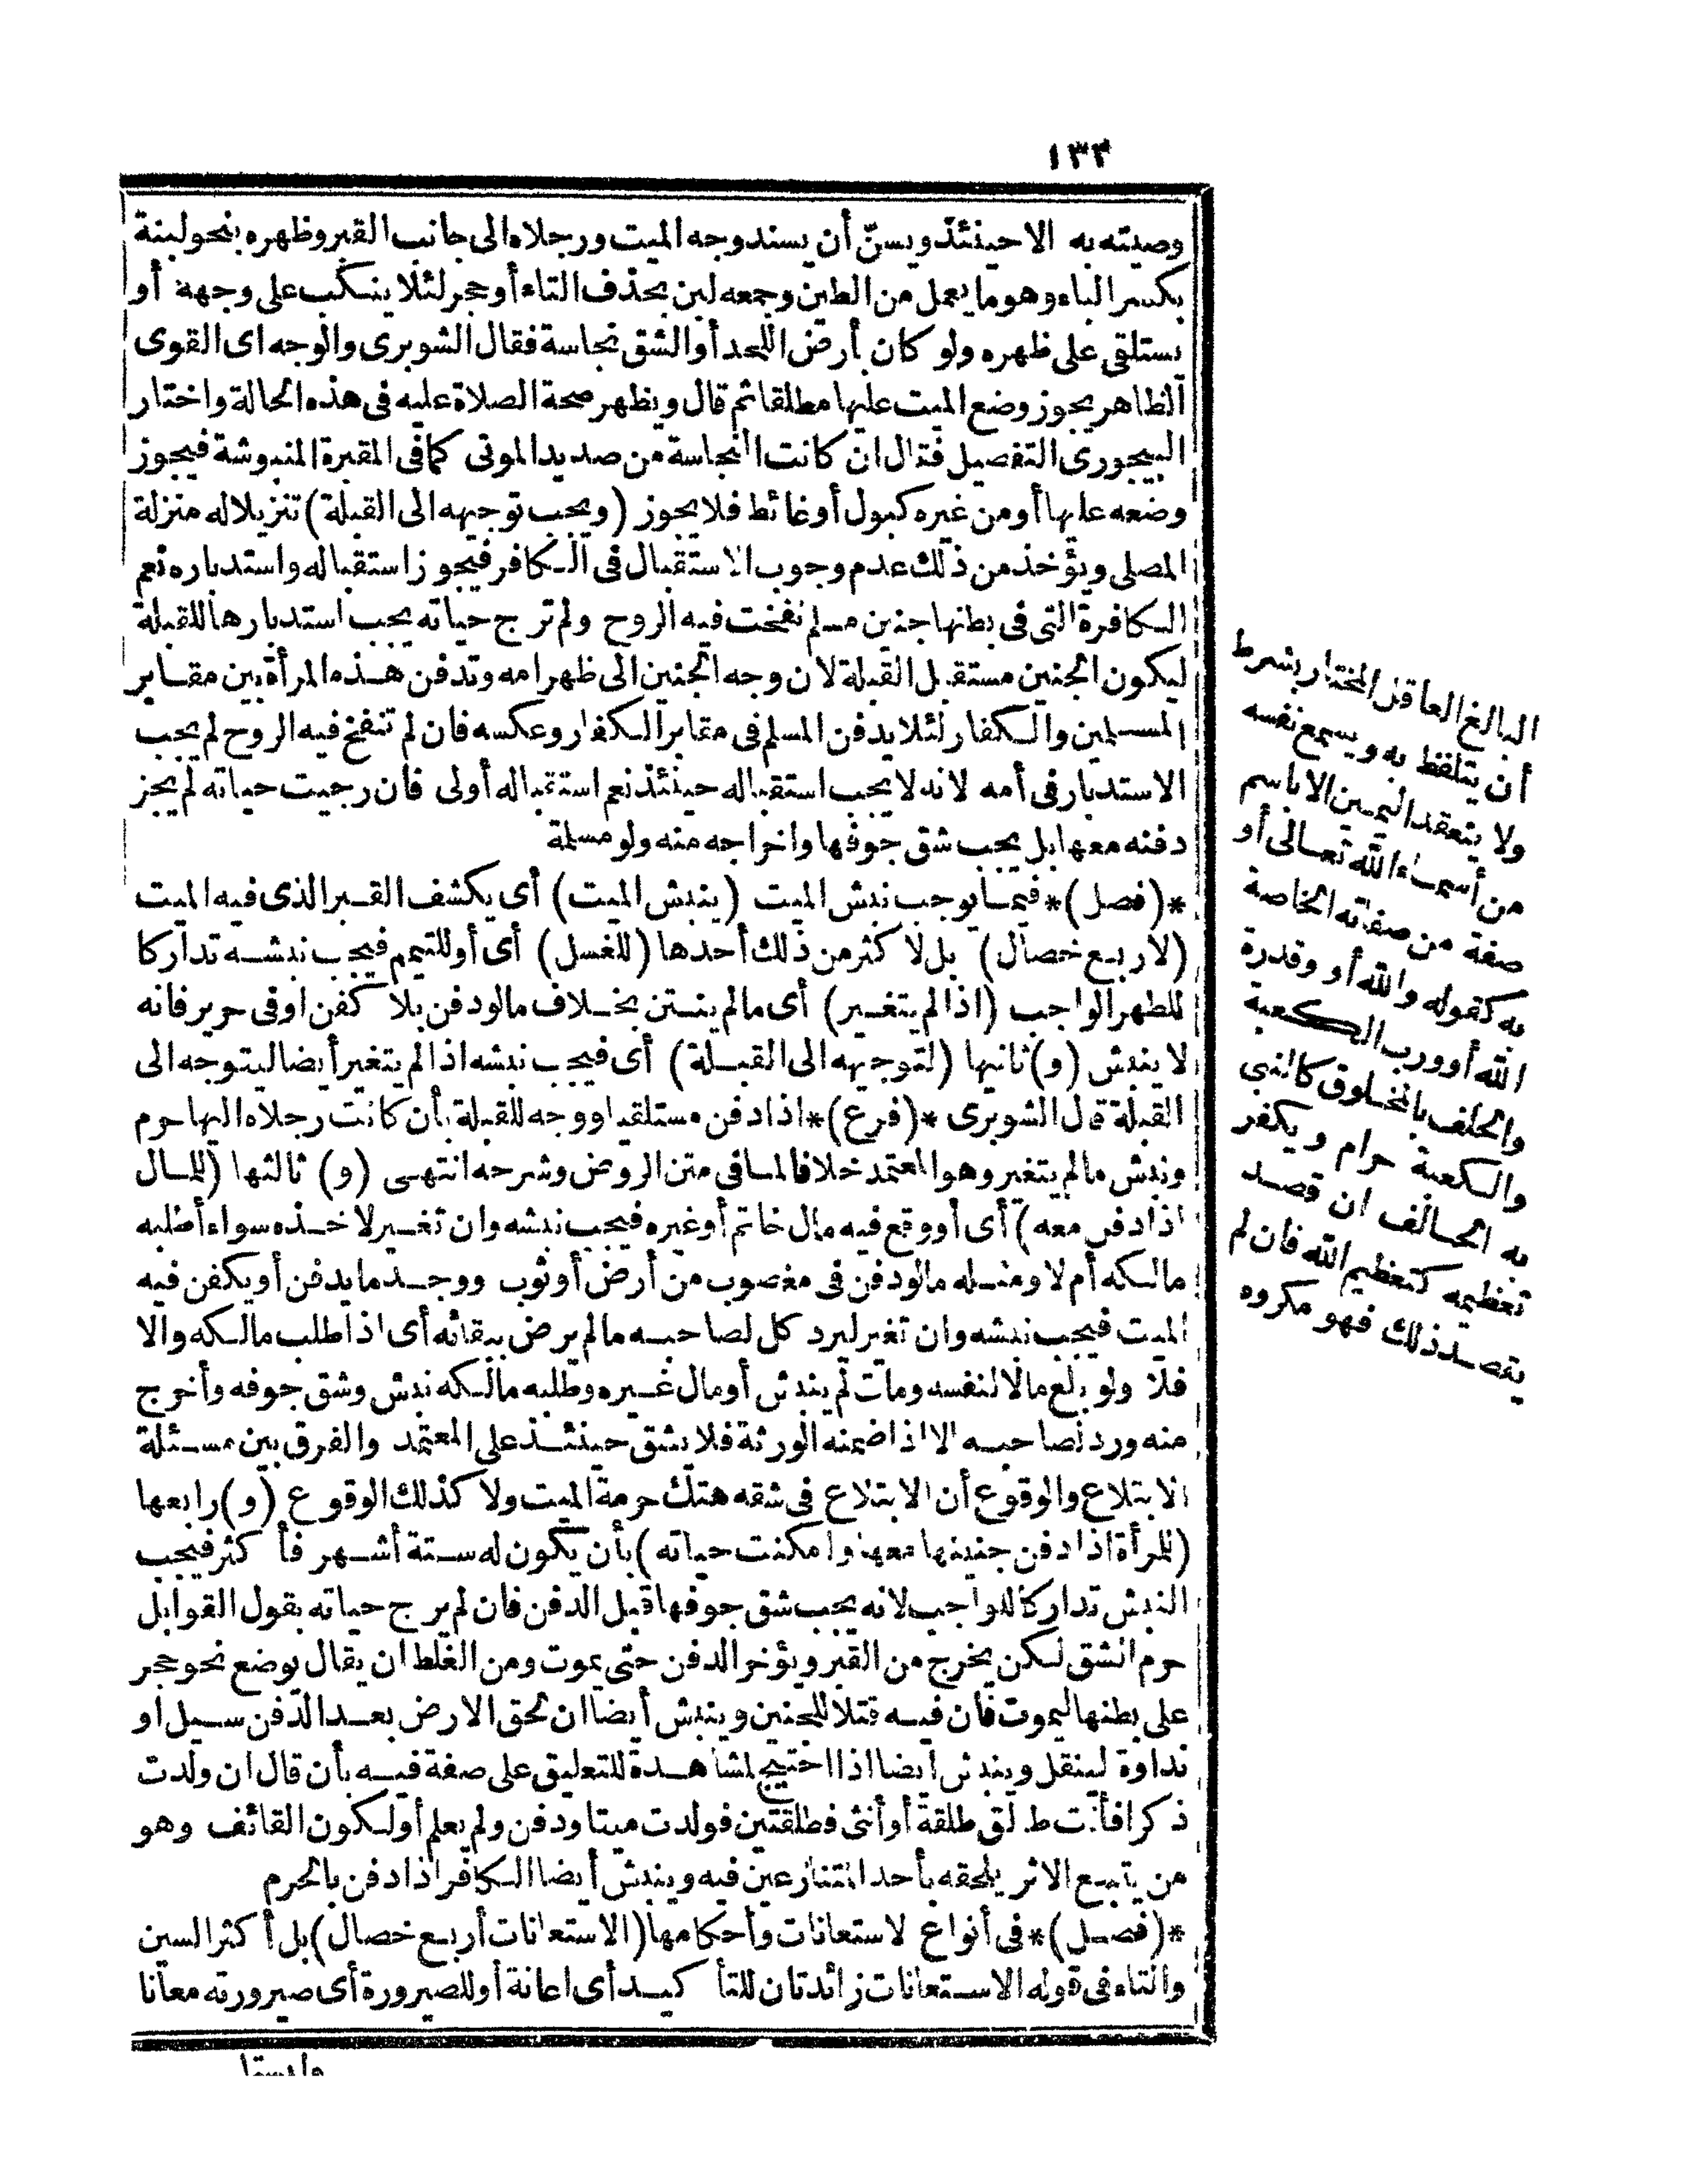 ١٣٣
وصيته به الا حينئذ ويسنّ أن يسند وجه الميت ورجلاه الى جانب القبر وظهره بنحو لبنة
بكسر الباء وهو ما يعمل من الطين وجمعه لبن بحذف التاء أو حجر لئلا ينكب على وجهه أو
يستلقى على ظهره ولو كان بأرض اللحد أو الشق نجاسة فقال الشوبرى والوجه اى القوى
الظاهر يجوز وضع الميت عليها مطلقا ثم قال ويظهر صحة الصلاة عليه فى هذه الحالة واختار
البيجورى التفصيل فقال ان كانت النجاسة من صديد الموتى كما فى المقبرة المنبوشة فيجوز
وضعه عليها أو من غيره كبول أو غائط فلا يجوز (ويجب توجيهه الى القبلة) تنزيلا له منزلة
المصلى ويؤخذ من ذلك عدم وجوب الاستقبال فى الكافر فيجوز استقباله واستدباره نعم
الكافرة التى فى بطنها جنين مسلم نفخت فيه الروح ولم ترج حياته يجب استدبارها للقبلة
ليكون الجنين مستقبل القبلة لان وجه الجنين الى ظهر امه وتدفن هذه المرأة بين مقابر
المسلمين والكفار لئلا يدفن المسلم فى مقابر الكفار وعكسه فان لم تنفخ فيه الروح لم يجب
الاستدبار فى أمه لانه لا يجب استقباله حينئذ نعم استقباله أولى فان رجيت حياته لم يجز
دفنه معها بل يجب شق جوفها واخراجه منه ولو مسلمة
*(فصل)* فيما يوجب نبش الميت (ينبش الميت) أى يكشف القبر الذى فيه الميت
(لاربع خصال) بل لا كثر من ذلك أحدها (للغسل) أى أو للتيمم فيجب نبشه تداركا
للطهر الواجب (اذا لم يتغير) أى ما لم ينتن بخلاف ما لو دفن بلا كفن او فى حرير فانه
لا ينبش (و) ثانيها (لتوجيهه الى القبلة) أى فيجب نبشه اذا لم يتغير أيضا ليتوجه الى
القبلة قال الشوبرى *(فرع)* اذا دفن مستلقيا ووجه للقبلة بأن كانت رجلاه اليها حرم
ونبش ما لم يتغير وهو المعتمد خلافا لما فى متن الروض وشرحه انتهى (و) ثالثها (للمال
اذا دفن معه) أى أو وقع فيه مال خاتم أو غيره فيجب نبشه وان تغير لا خذه سواء أطلبه
مالكه أم لا ومثله ما لو دفن فى مغصوب من أرض أو ثوب ووجد ما يدفن أو يكفن فيه
الميت فيجب نبشه وان تغير ليرد كل لصاحبه ما لم يرض ببقائه أى اذا طلب مالكه والا
فلا ولو بلع مالا لنفسه ومات لم ينبش أو مال غيره وطلبه مالكه نبش وشق جوفه وأخرج
منه ورد لصاحبه الا اذا ضمنه الورثة فلا يشق حينئذ على المعتمد والفرق بين مسئلة
الابتلاع والوقوع أن الابتلاع فى شقه هتك حرمة الميت ولا كذلك الوقوع (و) رابعها
(للمرأة اذا دفن جنينها معها وامكنت حياته) بأن يكون له ستة أشهر فأ كثر فيجب
النبش تداركا للواجب لانه يجب شق جوفها قبل الدفن فان لم يرج حياته بقول القوابل
حرم الشق لكن يخرج من القبر ويؤخر الدفن حتى يموت ومن الغلط ان يقال يوضع نحو حجر
على بطنها ليموت فان فيه قتلا للجنين وينبش أيضا ان لحق الارض بعد الدفن سيل او
نداوة لينقل وينبش ايضا اذا احتيج لمشاهدة للتعليق على صفة فيه بأن قال ان ولدت
ذكرا فأنت طالق طلقة أو أنثى فطلقتين فولدت ميتا ودفن ولم يعلم أو لكون القائف وهو
من يتبع الاثر يلحقه بأحد المتنازعين فيه وينبش أيضا الكافر اذا دفن بالحرم
*(فصل)* فى أنواع لاستعانات وأحكامها (الاستعانات أربع خصال) بل أكثر السين
والتاء فى قوله الاستعانات زائدتان للتأ كيد أى اعانة أو للصيرورة أى صيرورته معانا
البالغ العاقل المختار بشرط
أن يتلفظ به ويسمع نفسه
ولا ينعقد اليمين الا باسم
من أسماء الله تعالى أو
صفة من صفاته الخاصة
به كقوله والله أو وقدرة
الله أو ورب الكعبة
والحلف بالمخلوق كالنبى
والكعبة حرام ويكفر
به الحالف ان قصد
تعظيمه كتعظيم الله فان لم
يقصد ذلك فهو مكروه